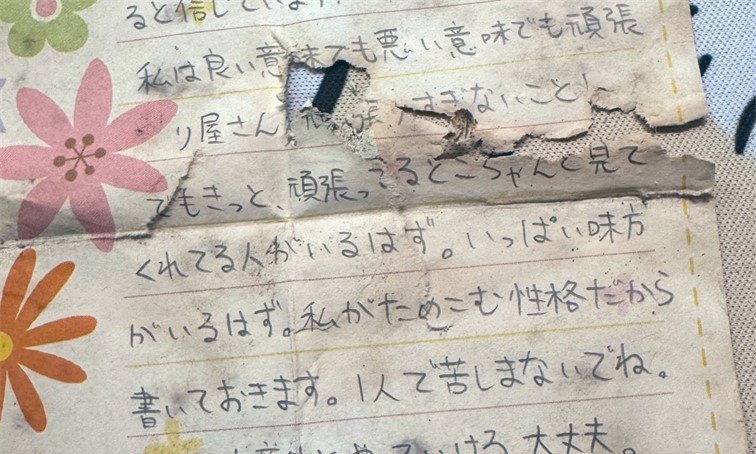 ると信じています
私は良い意味でも悪い意味でも頑張
り屋さん 頑張りすぎないこと!
でもきっと、頑張ってるとこちゃんと見て
くれてる人がいるはず。いっぱい味方
がいるはず。私がためこむ性格だから
書いておきます。1人で苦しまないでね。
大丈夫。